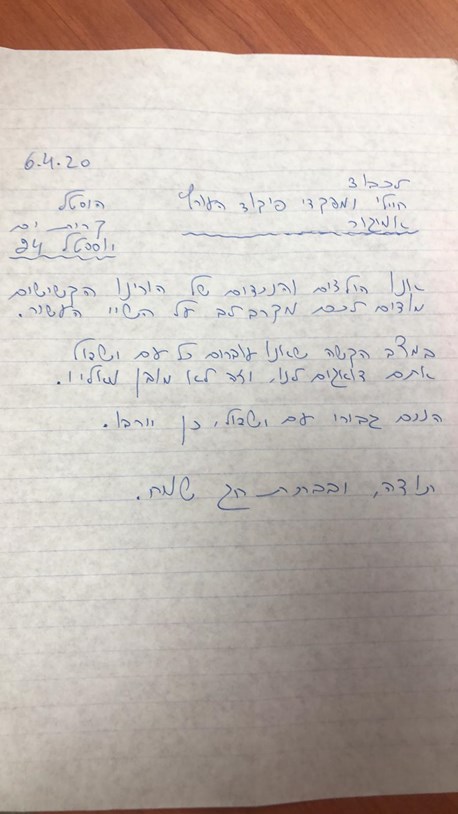 6.4.20
לכבוד
חיילי ומפקדי פיקוד העורף
אמיגור
הוסטל
קרית ים
יוספטל 94
אנו הילדים והנכדים של הורינו הקשישים
מודים לכם מקרב לב על השיי העשיר.
במצב הקשה שאנו עוברים כל עם ישראל
אתם דואגים לנו, וזה לא מובן מאליו.
הנכם גבורי עם ישראל, כן ירבו.
תודה, ובברכת חג שמח.